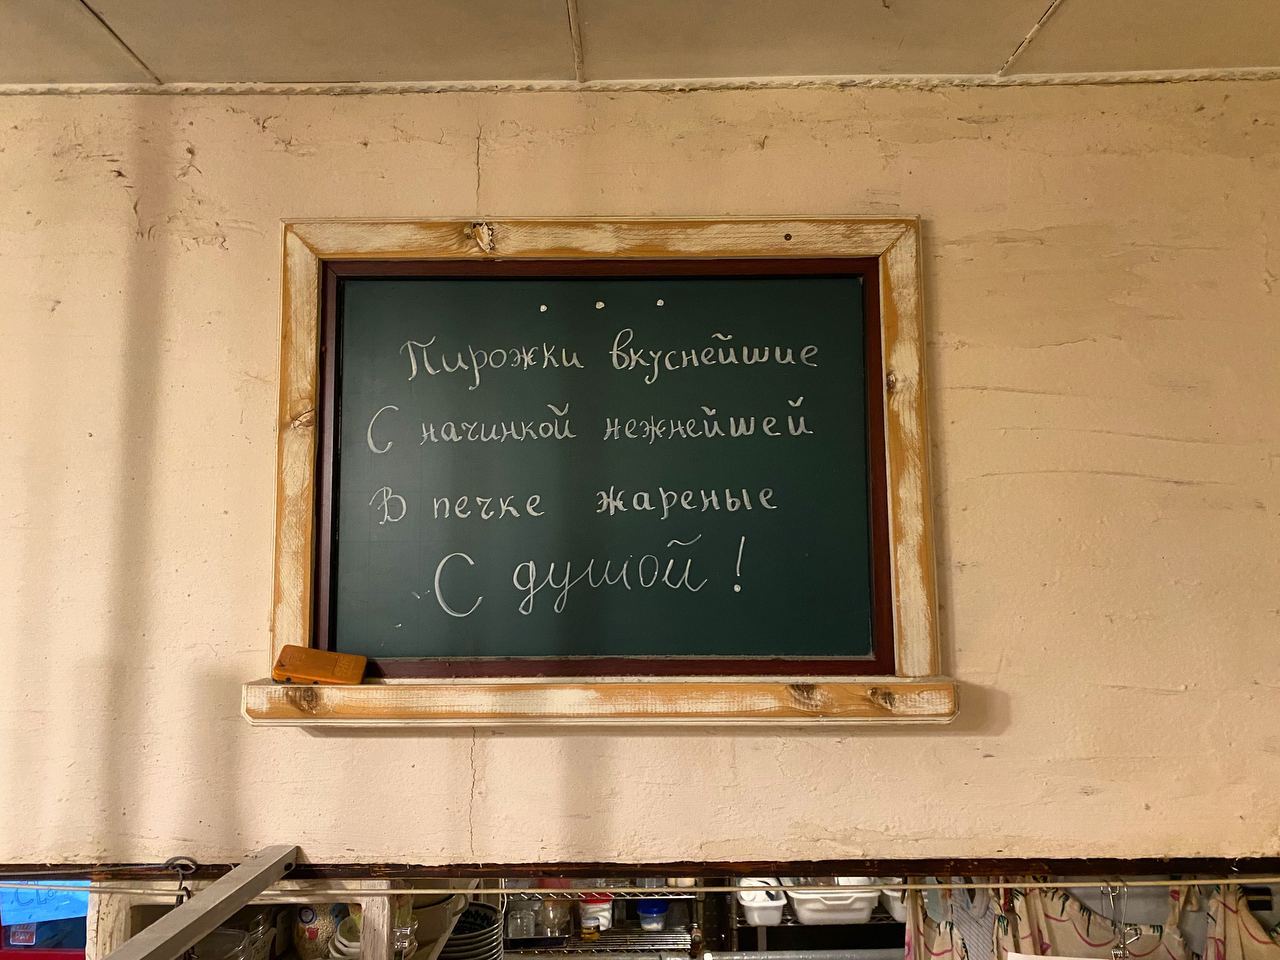 • • •
Пирожки вкуснейшие
С начинкой нежнейшей
В печке жареные
С душой!